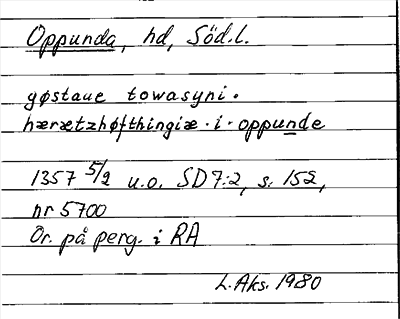 Oppunda, hd, Söd.l.
gøstaue towasyni.
hærætzhøfthingiæ · i · oppunde
1357 5/2 u.o. SD 7:2, s. 152,
nr 5700
Or. på perg. i RA
L. Aks. 1980